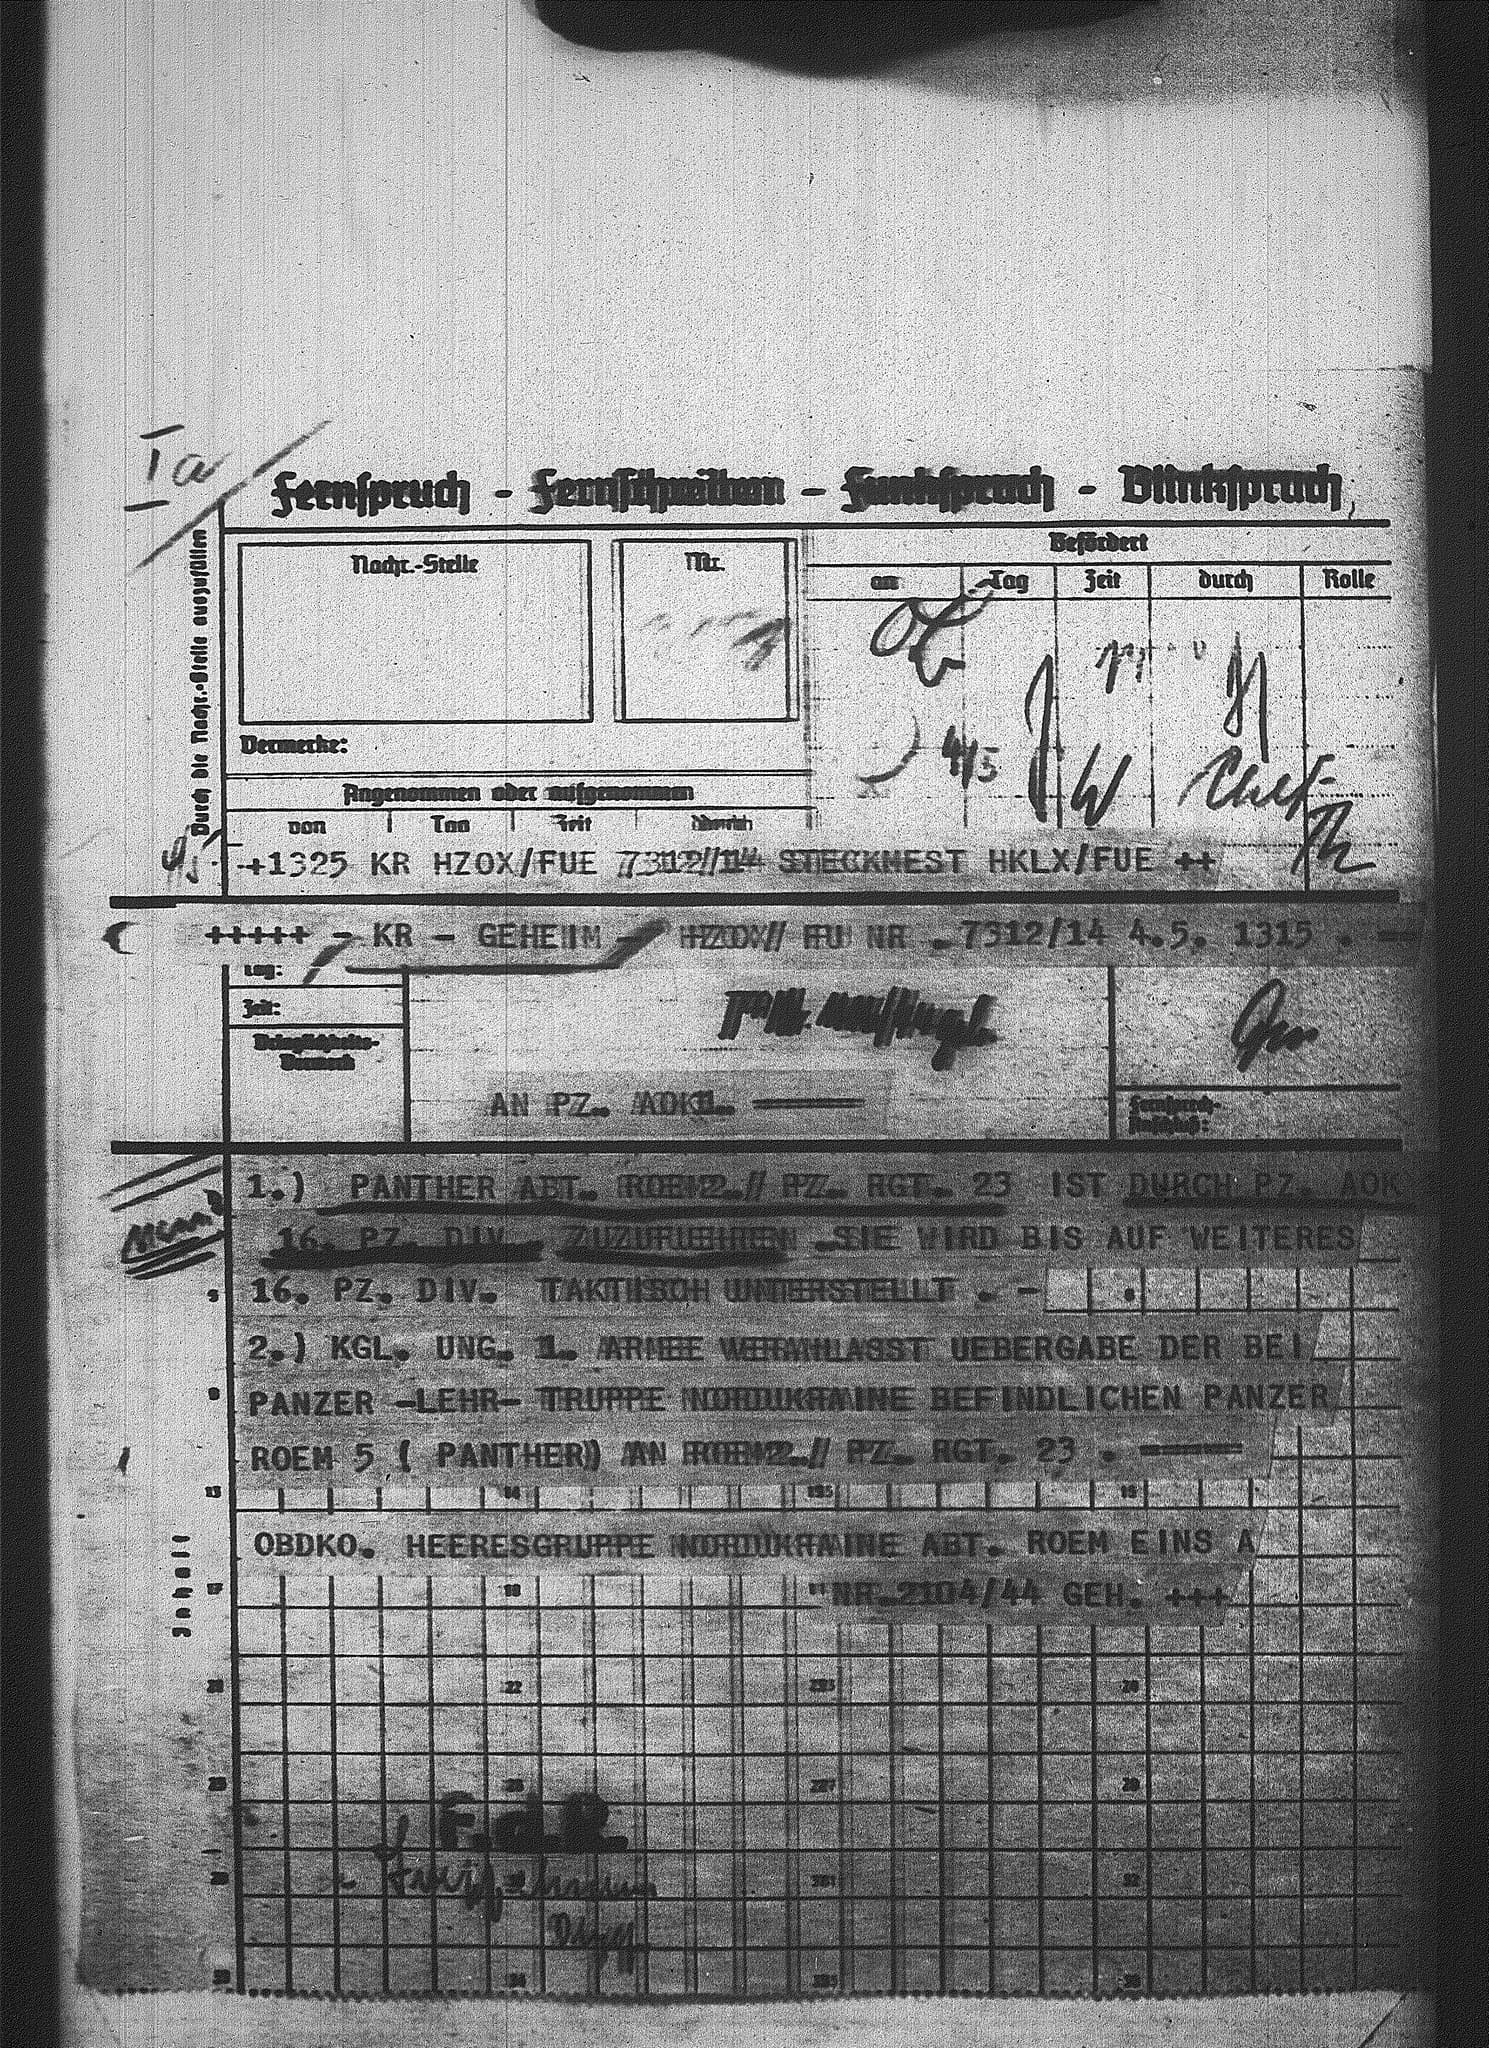 Ia
Fernspruch - Fernschreiben - Funkspruch - Blinkspruch
Durch die Nachr.-Stelle auszufüllen
Nachr.-Stelle
Nr.
Befördert
an Tag Zeit durch Rolle
4/5
Chef
Vermerke:
Angenommen oder aufgenommen
von Tag Zeit durch
+1325 KR HZOX/FUE 7312/14 STECKMEST HKLX/FUE ++
+++++ - KR - GEHEIM - HZOX/ FU NR .7312/14 4.5. 1315 . —
Tag:
Zeit:
Dringlichkeits-
Vermerk
AN PZ. AOK 1. ——
Fernsprech-
Anschluß:
1.) PANTHER ABT. ROEM 2./ PZ. RGT. 23 IST DURCH PZ. AOK
16. PZ. DIV. ZUZUFUEHREN .SIE WIRD BIS AUF WEITERES
16. PZ. DIV. TAKTISCH UNTERSTELLT . -
2.) KGL. UNG. 1. ARMEE VERANLASST UEBERGABE DER BEI
PANZER -LEHR- TRUPPE NORDUKRAINE BEFINDLICHEN PANZER
ROEM 5 ( PANTHER) AN ROEM 2./ PZ. RGT. 23 . ——
OBDKO. HEERESGRUPPE NORDUKRAINE ABT. ROEM EINS A
NR.2104/44 GEH. +++
Inhalt
F.d.R.